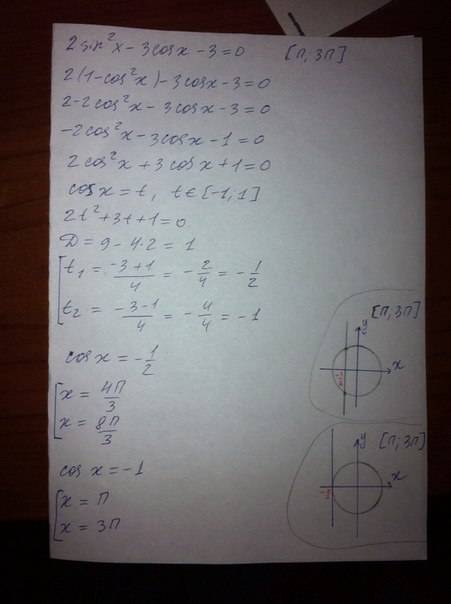 2sin²x - 3cosx - 3 = 0   [π; 3π]
2(1-cos²x) - 3cosx - 3 = 0
2 - 2cos²x - 3cosx - 3 = 0
-2cos²x - 3cosx - 1 = 0
2cos²x + 3cosx + 1 = 0
cosx = t, t∈[-1; 1]
2t² + 3t + 1 = 0
D = 9 - 4·2 = 1
t₁ = (-3+1)/4 = -2/4 = -1/2
t₂ = (-3-1)/4 = -4/4 = -1
cosx = -1/2
x = 4π/3
x = 8π/3
[π; 3π]
y
x
-1/2
cosx = -1
x = π
x = 3π
y [π; 3π]
x
-1